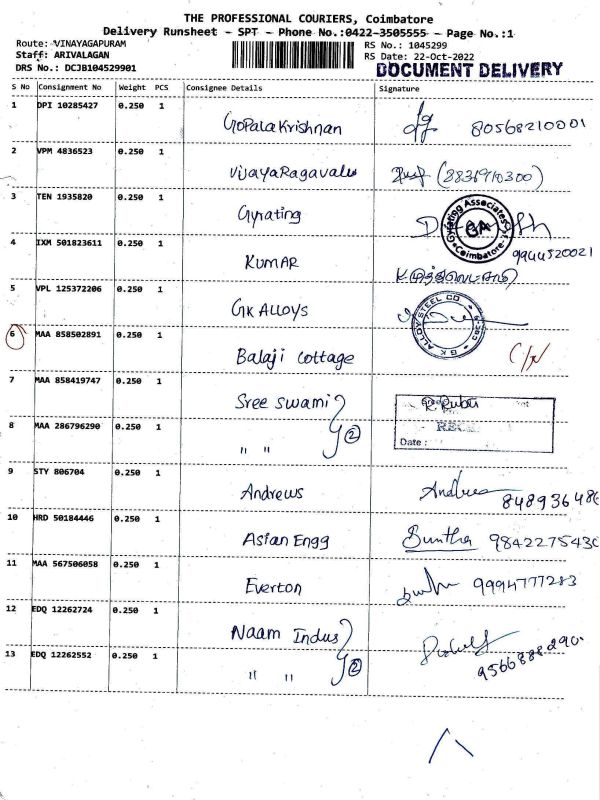 THE PROFESSIONAL COURIERS, Coimbatore
Delivery Runsheet - SPT - Phone No.:0422-3505555 - Page No.:1
Route: VINAYAGAPURAM
Staff: ARIVALAGAN
DRS No.: DCJB104529901
RS No.: 1045299
RS Date: 22-Oct-2022
DOCUMENT DELIVERY
S No Consignment No Weight PCS Consignee Details Signature
1 DPI 10285427 0.250 1 Gopala Krishnan 80568210001
2 VPM 4836523 0.250 1 Vijaya Ragavalu
3 TEN 1935820 0.250 1 Gyrating
Gyrating Associates
GA
Coimbatore
4 IXM 501823611 0.250 1 KUMAR 9944520021
5 VPL 125372206 0.250 1 GK Alloys
G.K ALLOY STEEL CO
6 MAA 858502891 0.250 1 Balaji cottage
7 MAA 858419747 0.250 1 Sree Swami
8 MAA 286796290 0.250 1 " " 2
Date :
9 STY 806704 0.250 1 Andrews Andrews 848936486
10 HRD 50184446 0.250 1 Asian Engg 9842275430
11 MAA 567506058 0.250 1 Everton 9994777283
12 EDQ 12262724 0.250 1 Naam Indus
13 EDQ 12262552 0.250 1 " " 2